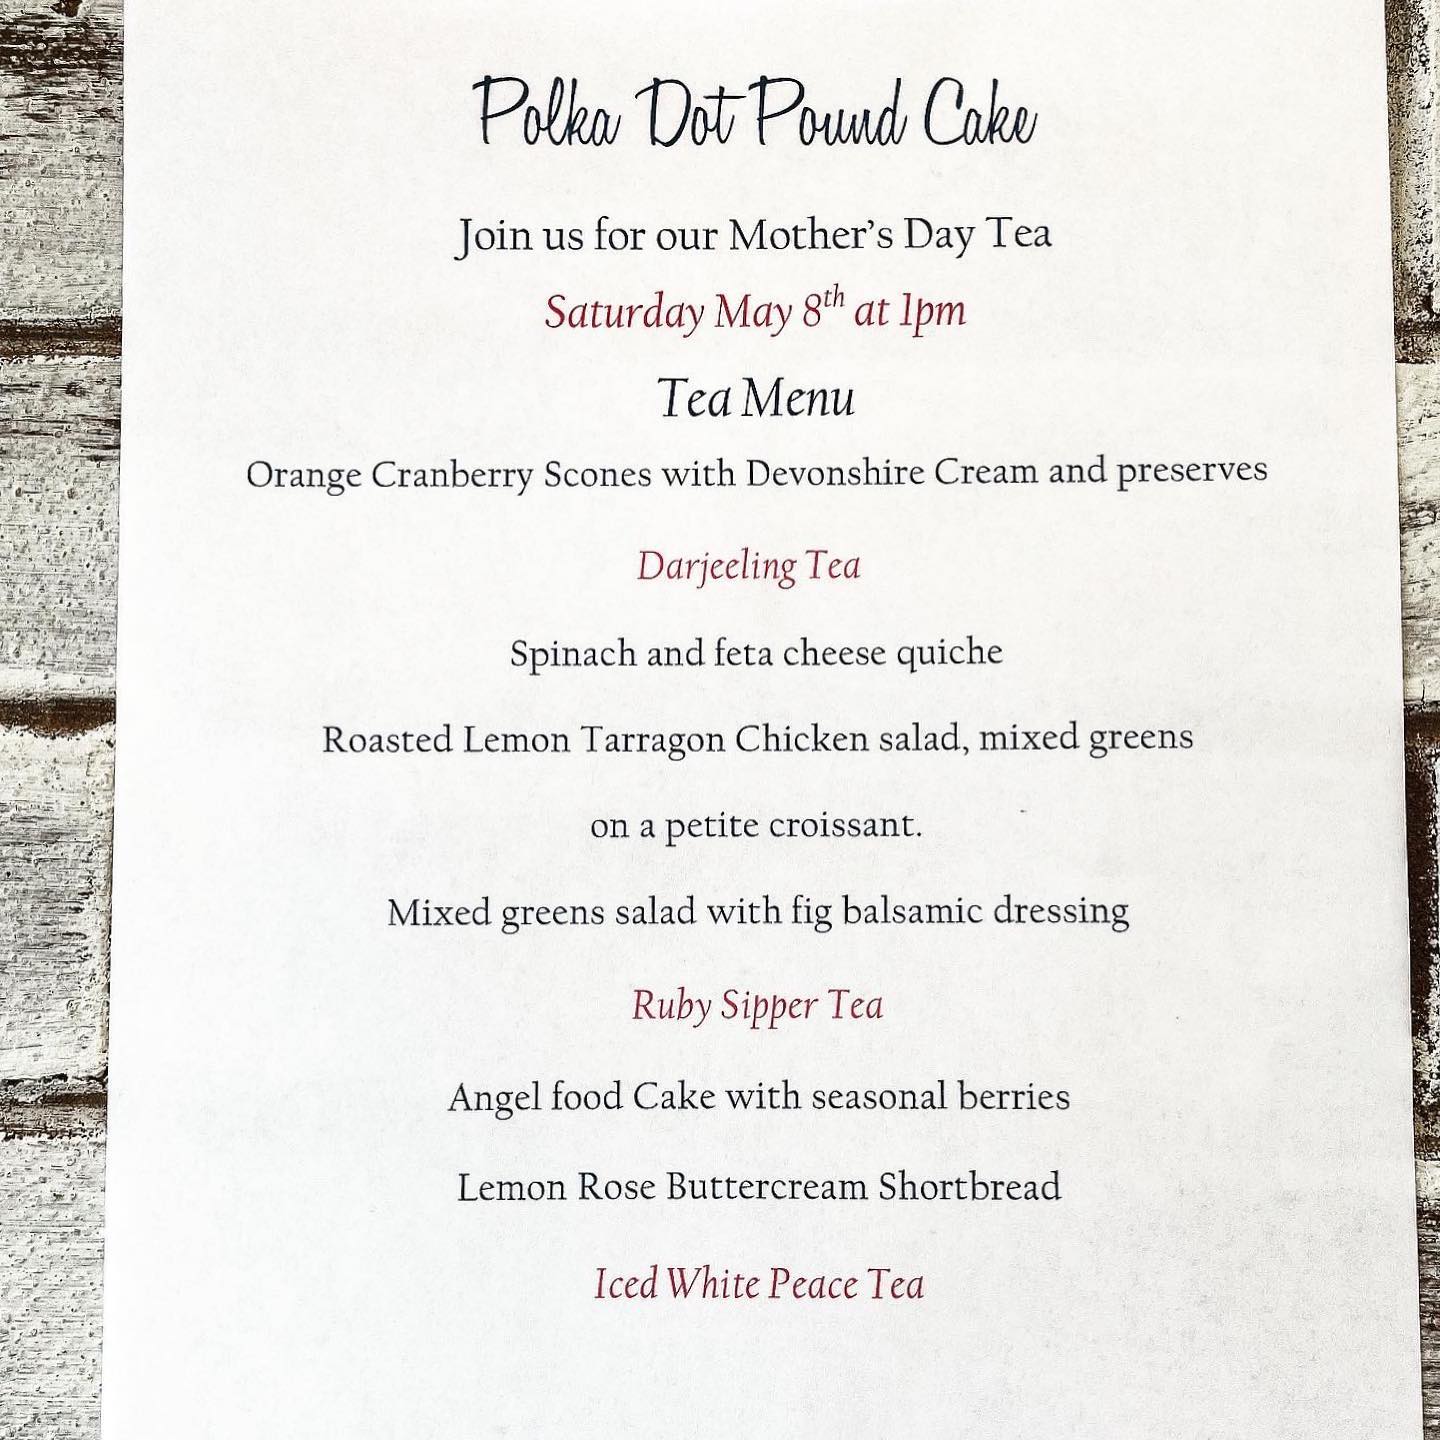 Polka Dot Pound Cake
Join us for our Mother's Day Tea
Saturday May 8th at 1pm
Tea Menu
Orange Cranberry Scones with Devonshire Cream and preserves
Darjeeling Tea
Spinach and feta cheese quiche
Roasted Lemon Tarragon Chicken salad, mixed greens
on a petite croissant.
Mixed greens salad with fig balsamic dressing
Ruby Sipper Tea
Angel food Cake with seasonal berries
Lemon Rose Buttercream Shortbread
Iced White Peace Tea